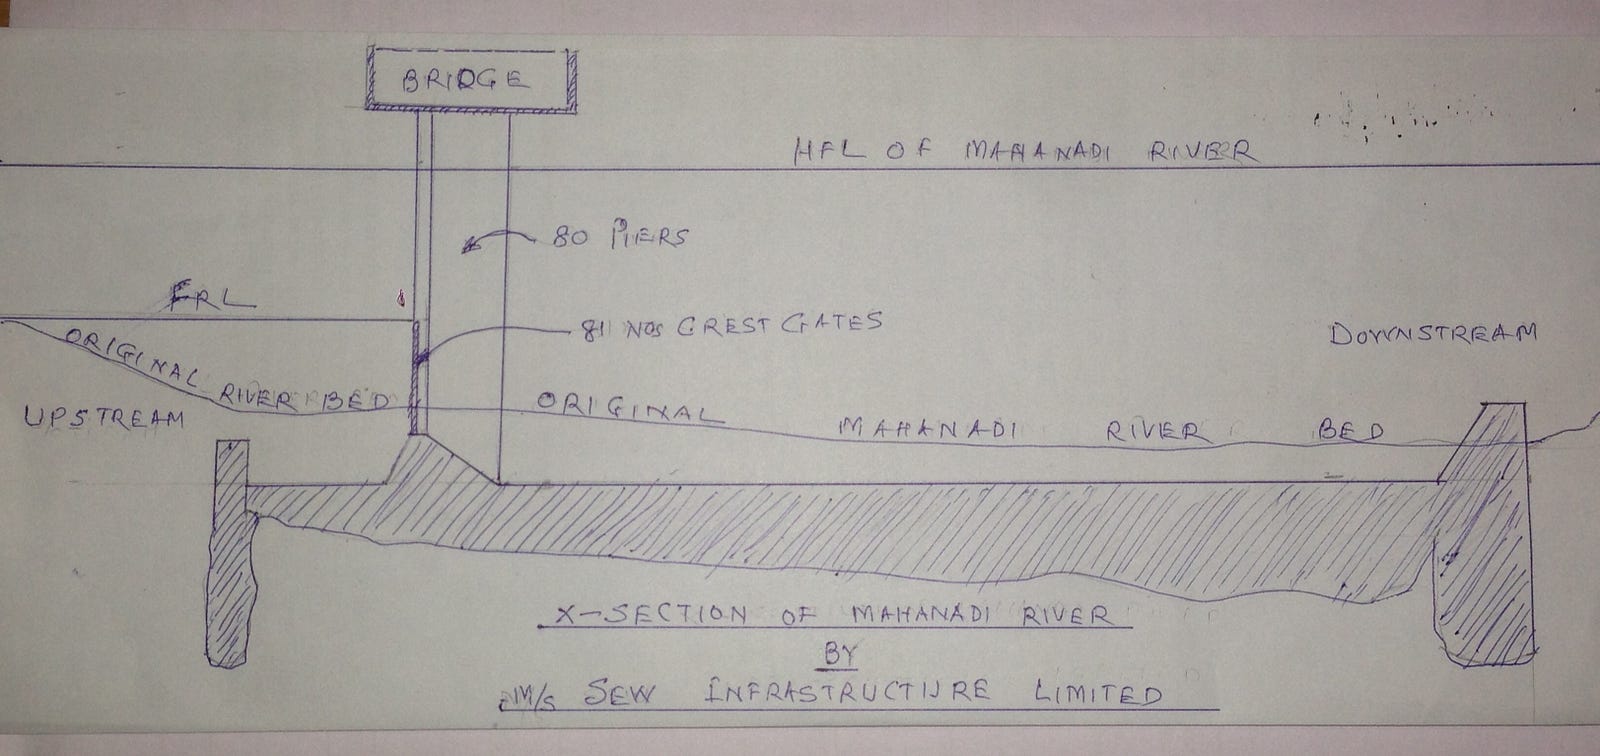 BRIDGE
HFL OF MAHANADI RIVER
80 PIERS
FRL
81 NOS CREST GATES
DOWNSTREAM
ORIGINAL RIVER BED
UPSTREAM
ORIGINAL MAHANADI RIVER BED
X-SECTION OF MAHANADI RIVER
BY
M/s SEW INFRASTRUCTURE LIMITED